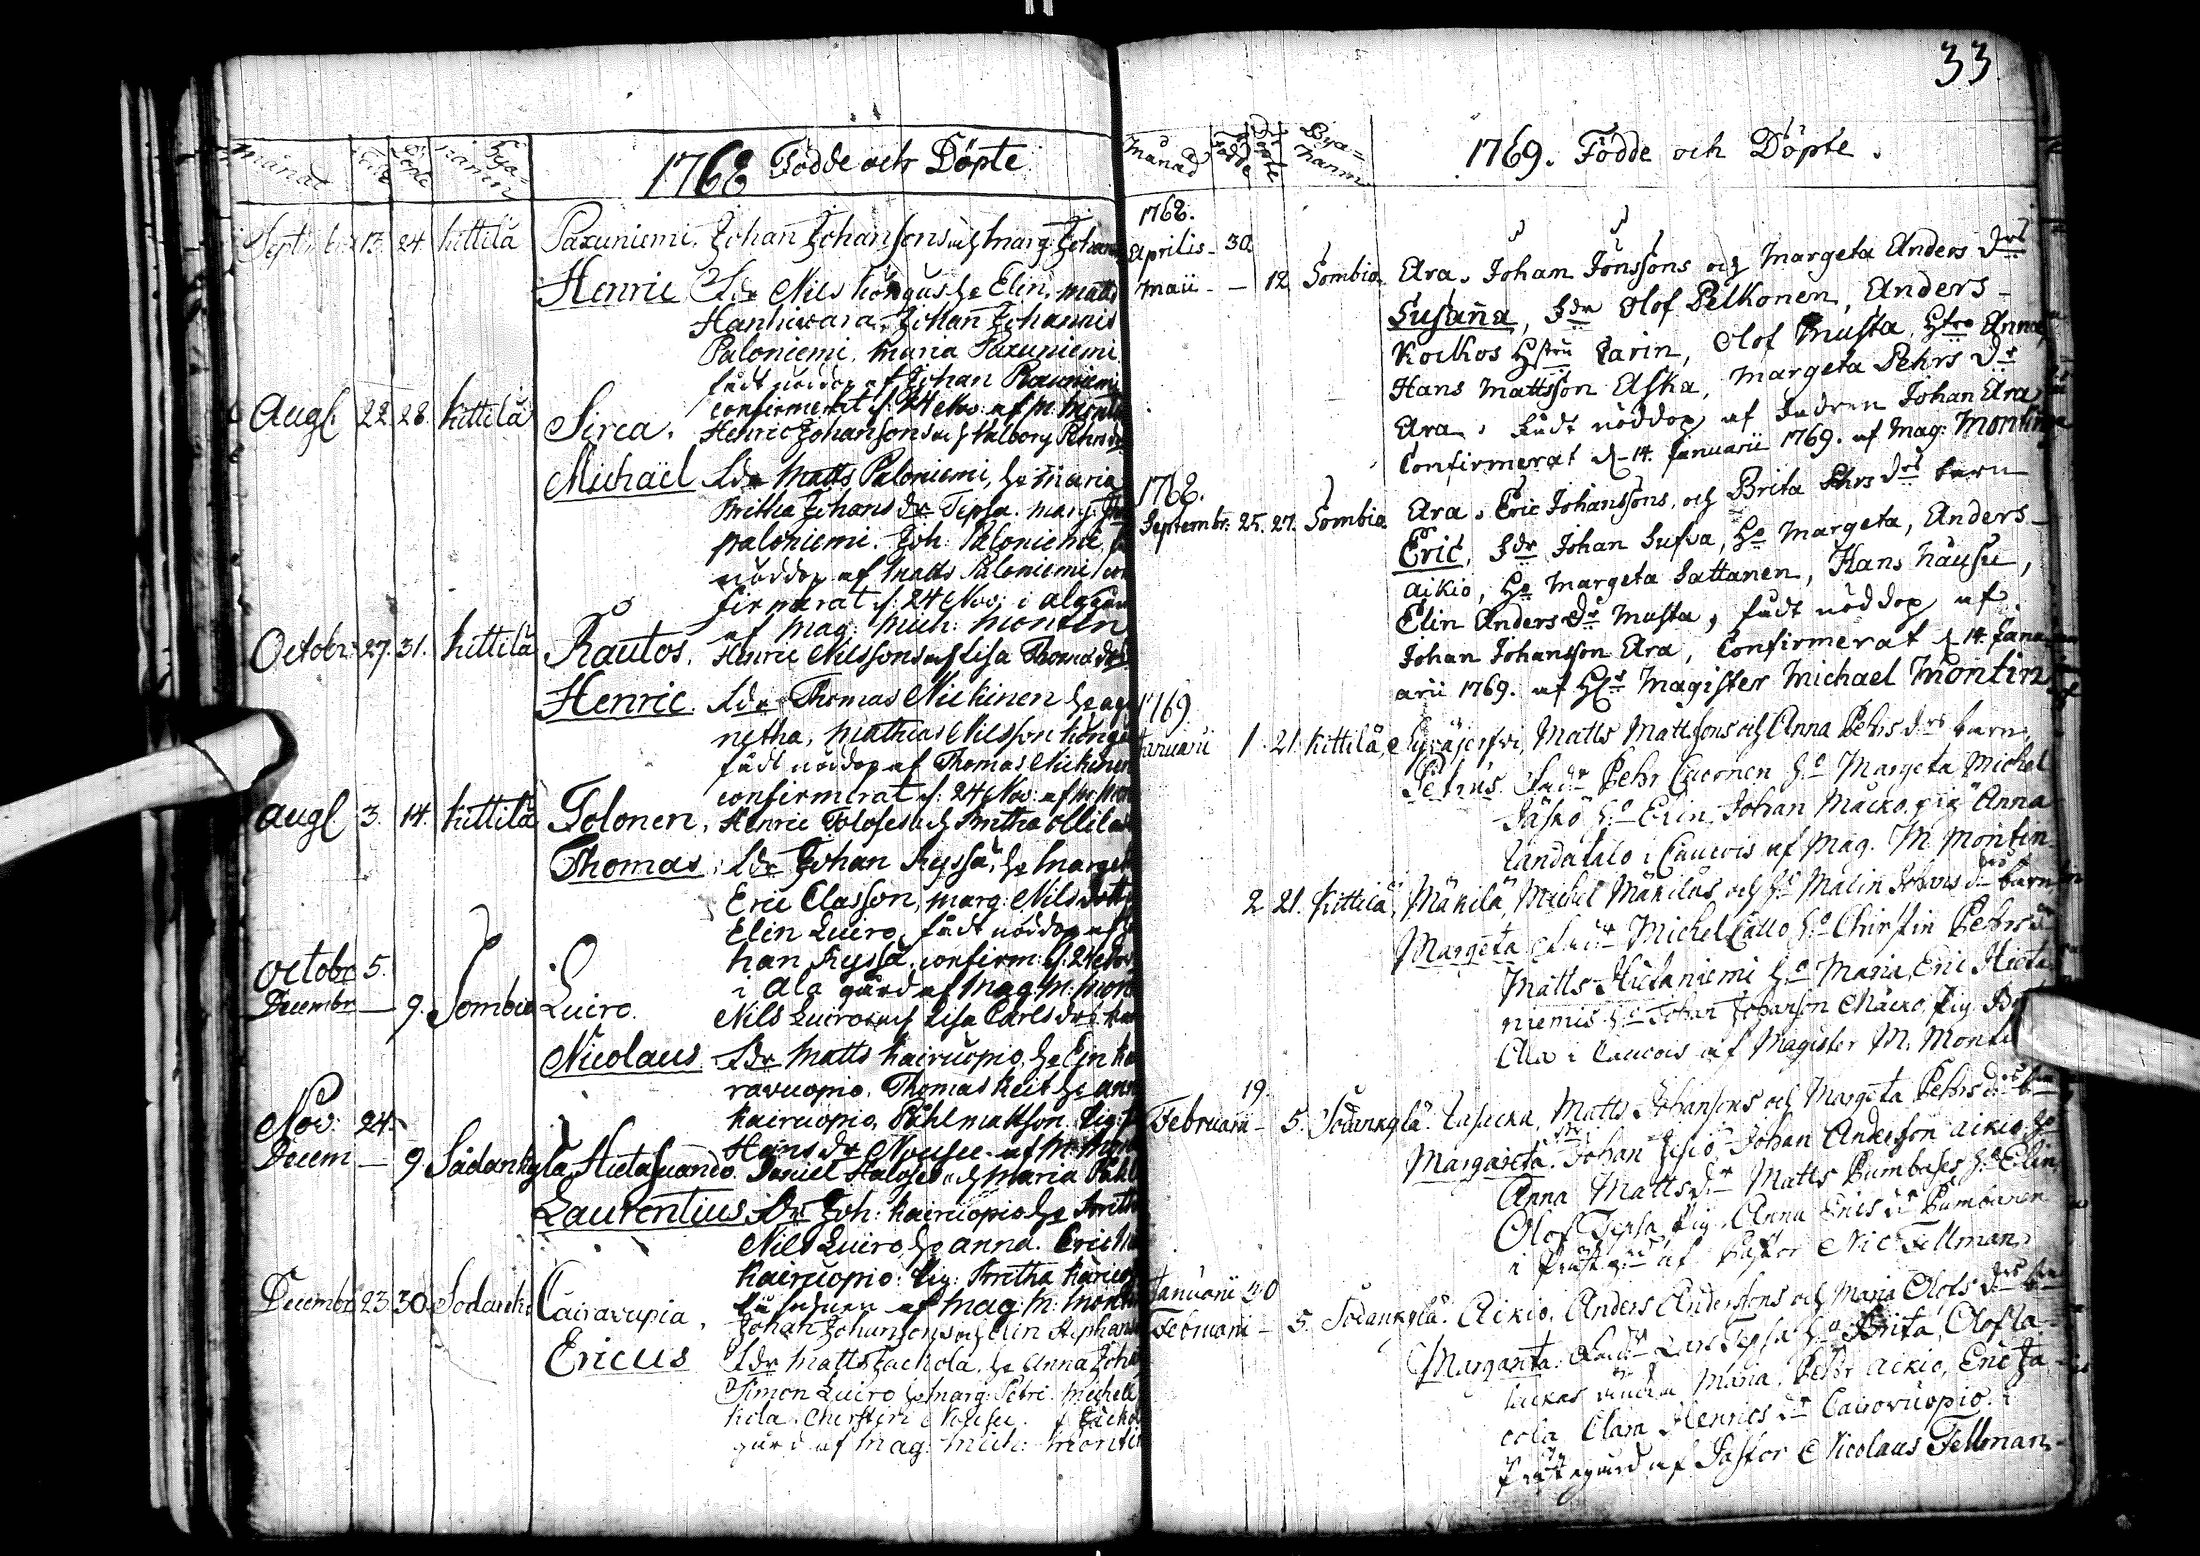 månat Född Döpte Bya=namn
1768 Födde och Döpte
Septembr: 13. 24. Kittilä Paxuniemi. Johan Johanssons och Marg: Johans
Henric Fdr Nils Köngus he Elin. Matts
Hanhiwara. Johan Johannis
Paloniemi. Maria Paxuniemi
fådt nöddop af Johan Paxuniemi
confirmerat d. 24 Nov: af M. Montin
Aug. 22. 28. Kittilä Sirca. Henric Johanssons och Walborg Pehrs dr
Michaël Fdr Matts Paloniemi, he Maria
Britha Johans Dr Tepsa. Marg:
Paloniemi. Joh: Paloniemi,
nöddop af Matts Paloniemi con
firmerat d. 24 Nov: i Ala gård
af Mag: Mich: Montin
Octobr: 27. 31. Kittilä Rautos. Henric Nilssons och Lisa Thomæ dr
Henric. Fdr Thomas Nickinen he ag
netha, Mathias Nilsson Köngus
fådt nöddop af Thomas Nickinen
confirmerat d. 24 Nov: af M. Mon
Augl 3. 14. Kittilä Tolonen. Henric Toloses och Britha Ollilas
Thomas. Fdr Johan Kyssä, he Marget
Eric Classon, marg: Nils dott
Elin Luiro, fådt nöddop af Jo
han Kyssä. confirm: d. 24 Nov
i Ala gård af Mag: M: Mont
Octobr 5.
Decembr — 9. Sombio Luiro. Nils Luiros och Lisa Carls drs barn
Nicolaus Fdr Matts Kairuopio, he Elin Kai
ravuopio. Thomas Keit he ann
Kairuopio, Påhl Mattson. Pig:
Hans dr Nousu. af M: Mon
Nov: 24.
Decem — 9 Sådankylä, Hietasuando. Daniel Haloses och Maria Påhl
Laurentius. Fdr Joh: Kairuopio he Brith
Nils Luiro, he anna. Eric
Kairuopio. Pig: Britha Kairuop
af Mag: M: Montin
Decembr 23. 30. Sodank: Cairavupia. Johan Johanssons och Elin Stephans
Ericus Fdr Matts Jackola. he Anna Joh
Simon Luiro he Marg: Petri. Michell
Kola. Cherstin Nousu.
gård af Mag: Mich: Montin
33
Månad Födde Döpte Bya=namn
1769. Födde och Döpte.
1768.
Aprilis - 30
Maii - — 12. Sombio. Ara. Johan Jönssons och Margeta Anders Drs
Susanna, Fdr Olof Pelkonen, Anders
Kockos Hstru Carin, Olof Musta, Hstro Anna
Hans Mattsson Aska, Margeta Pehrs Dr
Ara. Fådt nöddop af Fadren Johan Ara
Confirmerat d. 14. Januarii 1769. af Mag: Montin
1768.
Septembr: 25. 27. Sombio. Ara. Eric Johanssons, och Brita Ehrs drs barn
Eric, Fdr Johan Sufva, Ho Margeta, Anders
Aikio, Ho Margeta Sattanen, Hans Nåusu,
Elin Anders Dr Musta, fådt nöddop af
Johan Johansson Ara, Confirmerat d. 14. Janu
arii 1769. af Hr Magister Michael Montin
1769
Januarii 1 21. Kittilä, Syväjerfvi, Matts Mattssons och Anna Pehrs drs barn
Petrus. Fadr Pehr Cueonen ho Margeta, Michel
Jäskö ho Elin, Johan Mäcko, pig Anna
Landatalo i Caucois af Mag. M. Montin
2 21. Kittilä, Mäkilä, Michel Mäkiläs och ho Malin Johans drs barn
Margeta, Fadr Michel Callo, ho Christin Pehrs dr
Matts Hietaniemi ho Maria, Eric Hieta
niemis ho Johan Johanson Mäcko, Pig. Br
Ala i Caucois af Magister M. Monti
19.
Februarii - 5. Sodankylä. Lasucka, Matts Johansons och Margeta Pehrs drs barn
Margareta. Fdr Johan Jesiö, Johan Andersson Aikio, ho
Anna Matts dr Matts Pumbases, ho Elin
Olof Tepsa, Pig. Anna Erics dr Pumbanen
i Prästgd af Pastor Nic: Fellman
Januarii 30
Februarii - 5. Sodankylä. Aikio. Anders Anderssons och Maria Olofs drs barn
Margareta. Fadr Lars Tepsa ho Brita, Olof La
luckas Maria. Pehr Aikio, Eric Ja
cola Clara Henrics dr Cairovuopio. i
Prästegård af Pastor Nicolaus Fellman.